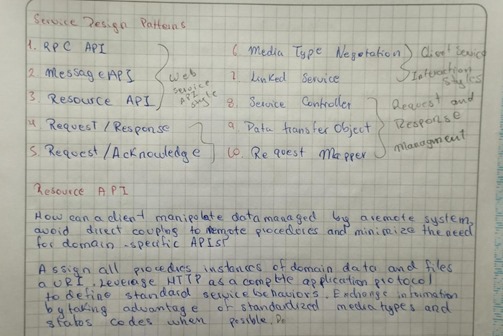 Service Design Patterns
1. RPC API
2. Message API
3. Resource API
Web
service
API
style
4. Request / Response
5. Request / Acknowledge
6. Media Type Negotation
7. Linked Service
Client Service
Interaction
styles
8. Service Controller
9. Data transfer Object
10. Request Mapper
Request and
Response
Managment
Resource API
How can a client manipulate data managed by a remote system,
avoid direct coupling to remote procederes and minimize the need
for domain-specific APIs?
Assign all procedres, instances of domain data and files
a URI. Leverage HTTP as a complete application protocol
to define standard service behaviors. Exchange information
by taking advantage of standardized media types and
status codes when possible.